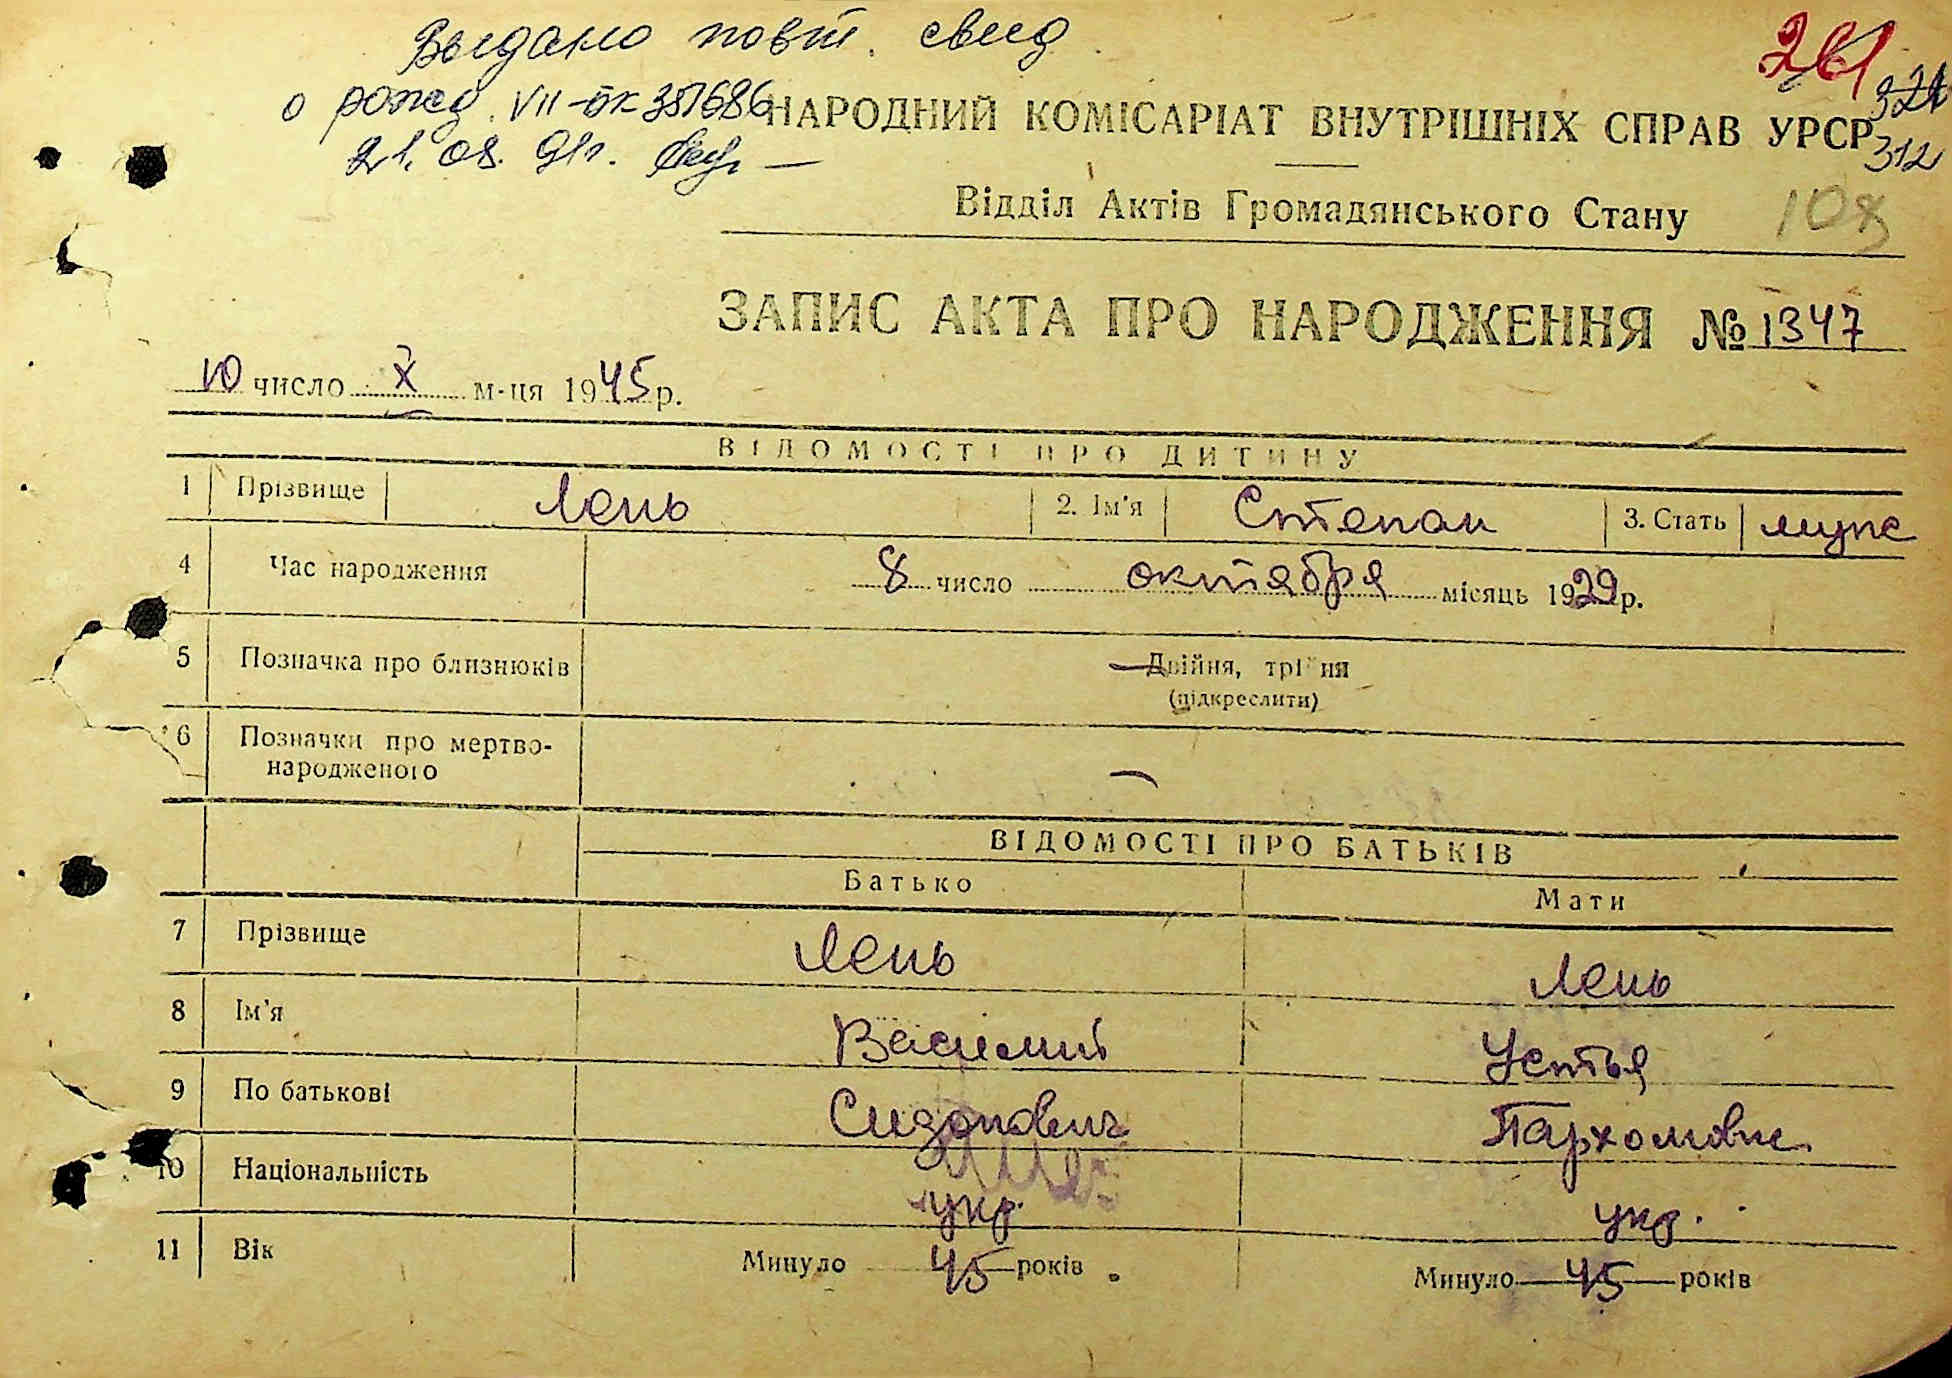 Выдано повт. свид
о рожд. VII-БК 381686
21. 08. 91г.
261
324
312
НАРОДНИЙ КОМІСАРІАТ ВНУТРІШНІХ СПРАВ УРСР
Відділ Актів Громадянського Стану
ЗАПИС АКТА ПРО НАРОДЖЕННЯ № 1347
10 число X м-ця 1945 р.
ВІДОМОСТІ ПРО ДИТИНУ
1 Прізвище Лень 2. Ім'я Степан 3. Стать муж
4 Час народження 8 число октября місяць 1929 р.
5 Позначка про близнюків Двійня, трійня
(підкреслити)
6 Позначки про мертво-
народженого —
ВІДОМОСТІ ПРО БАТЬКІВ
Батько Мати
7 Прізвище Лень Лень
8 Ім'я Василий Устья
9 По батькові Сидорович Пархомовн.
10 Національність укр. укр.
11 Вік Минуло 45 років Минуло 45 років